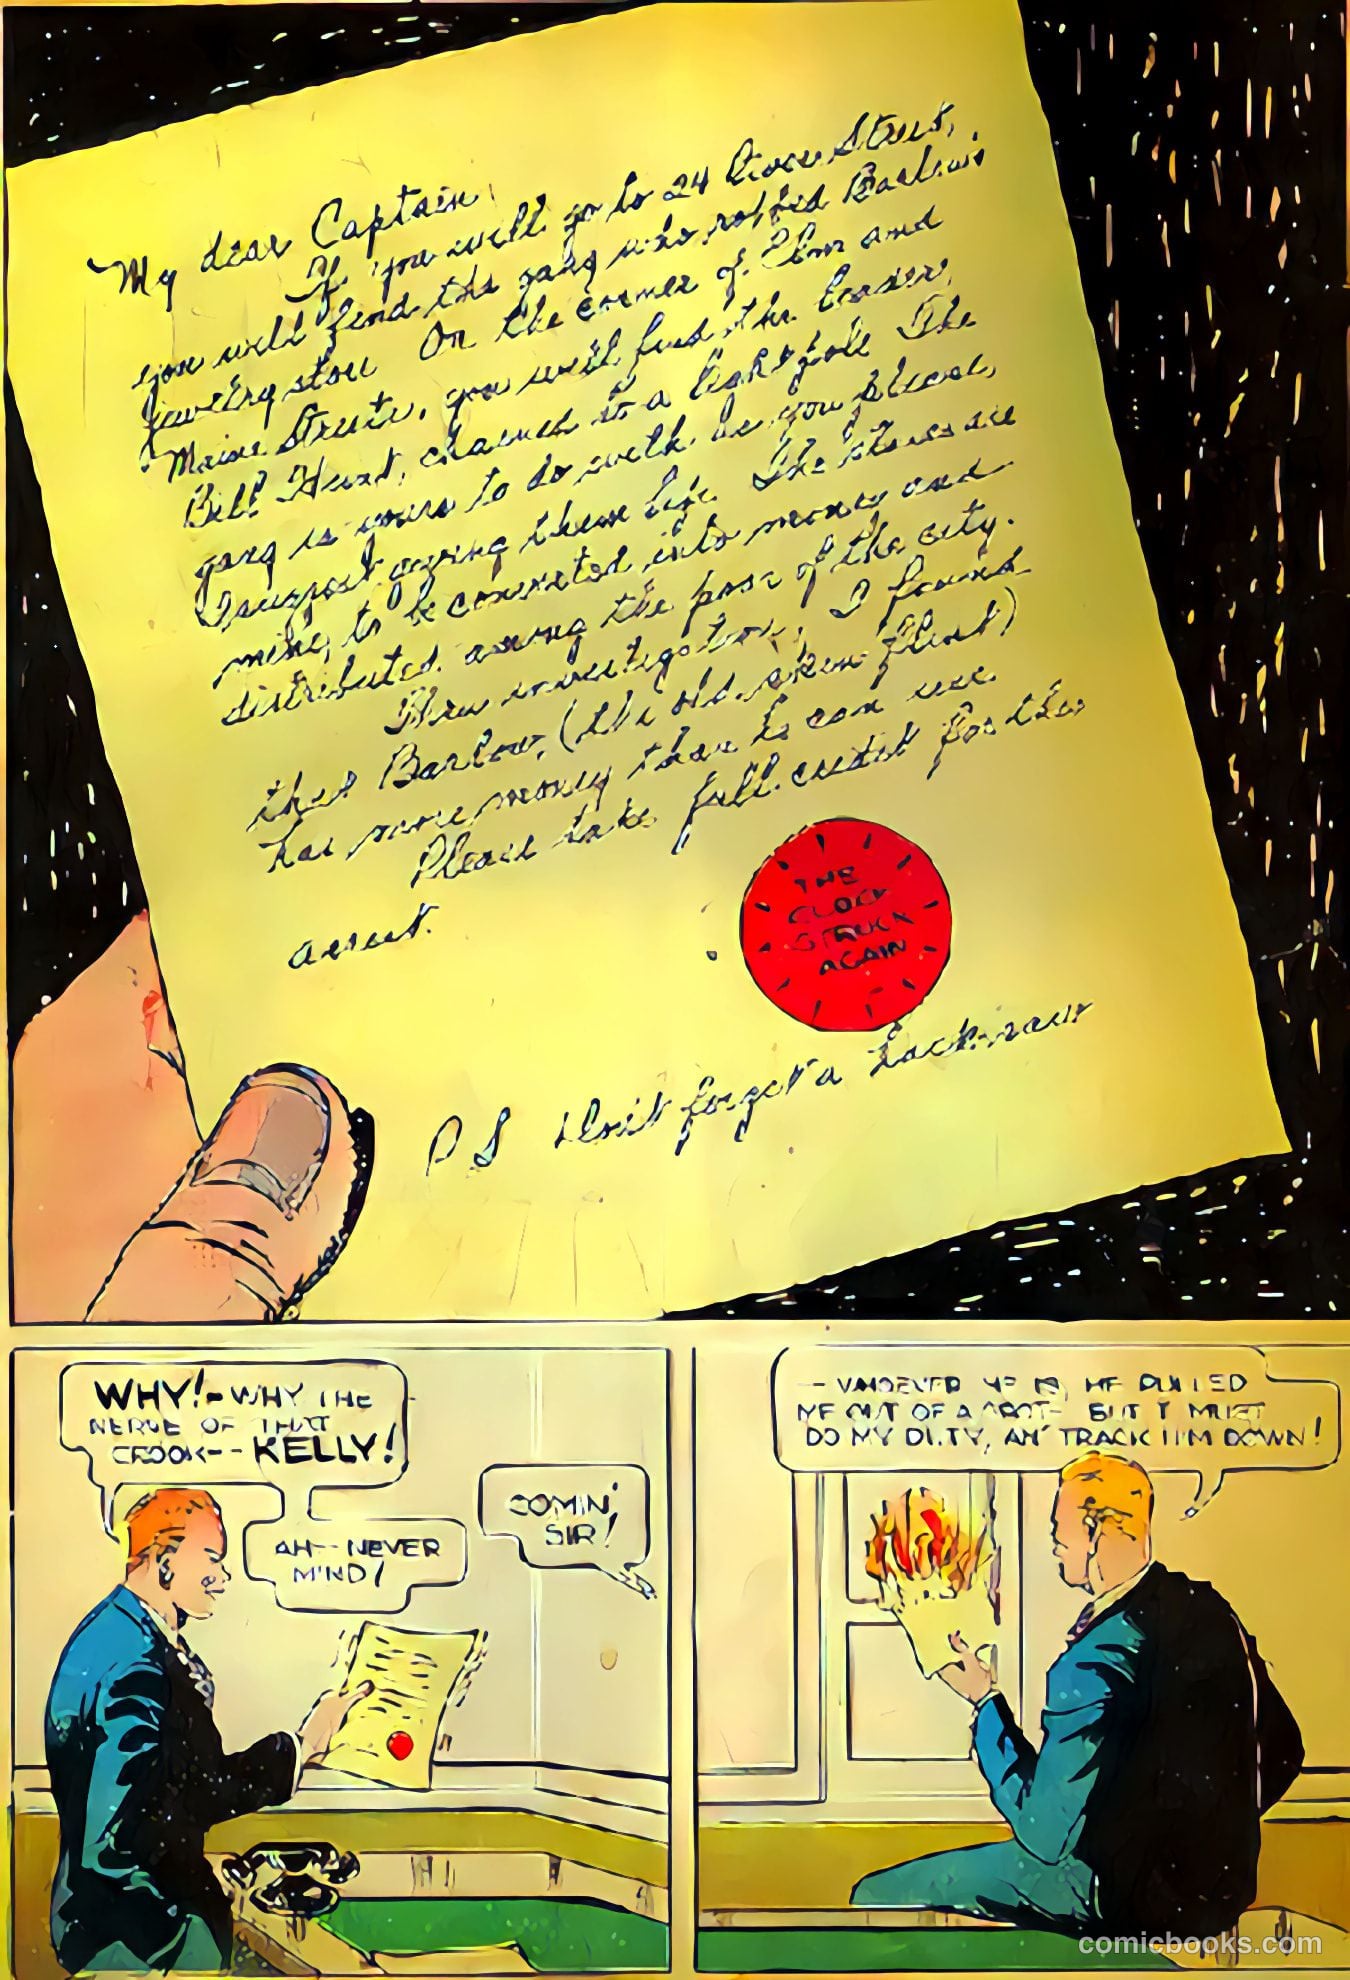 My dear Captain
If you will go to 24 Street,
you will find the gang who robbed Barlow's
jewelry store On the corner of Elm and
Maine Streets, you will find the leader,
Bill Hunt, chained to a light pole The
gang is yours to do with as you please,
I suggest giving them life. The jewels are
mine, to be converted into money and
distributed among the poor of the city.
Thru investigation, I found
that Barlow, (the old skin flint)
has more money than he can use.
Please take full credit for the
arrest.
THE
CLOCK
STRUCK
AGAIN
P S Don't forget a hacksaw
WHY!- WHY THE
NERVE OF THAT
CROOK-- KELLY!
AH-- NEVER
MIND!
COMIN'
SIR!
-- WHOEVER HE IS, HE PULLED
ME OUT OF A SPOT- BUT I MUST
DO MY DUTY, AN' TRACK HIM DOWN!
comicbooks.com